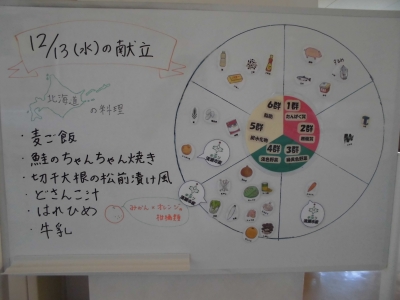 12/13(水)の献立
北海道
の料理
・麦ご飯
・鮭のちゃんちゃん焼き
・切干大根の松前漬け風
・どさんこ汁
・はれひめ
みかん×オレンジの
・牛乳
6群
脂肪
1群
たんぱく質
5群
炭水化物
2群
無機質
4群
3群